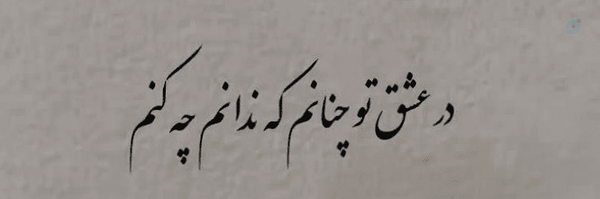 در عشق تو چنانم که ندانم چه کنم